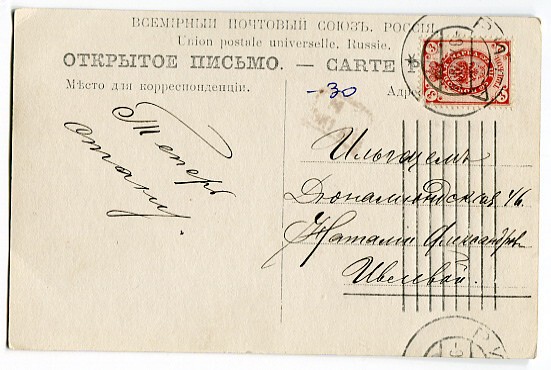 ВСЕМІРНЫЙ ПОЧТОВЫЙ СОЮЗЪ. РОССІЯ.
Union postale universelle. Russie.
ОТКРЫТОЕ ПИСЬМО. — CARTE P
Мѣсто для корреспонденціи.
Адре
-30
3 3
3 3
РИГА
Теперь
стали.
Ильгецемъ
46.
Наталіи Александров
Ивелевой.
РИ